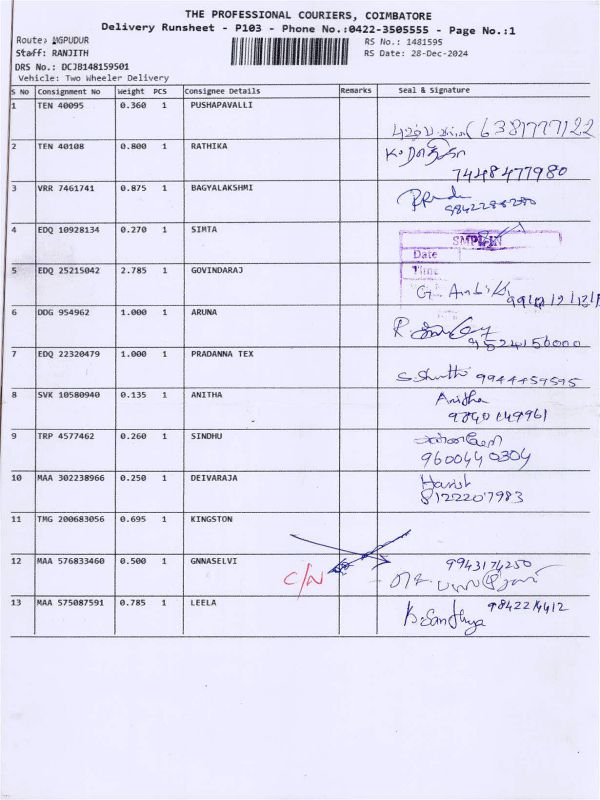 THE PROFESSIONAL COURIERS, COIMBATORE
Delivery Runsheet - P103 - Phone No.:0422-3505555 - Page No.:1
Route: MGPUDUR
RS No.: 1481595
Staff: RANJITH
RS Date: 28-Dec-2024
DRS No.: DCJB148159501
Vehicle: Two Wheeler Delivery
S No Consignment No Weight PCS Consignee Details Remarks Seal & Signature
1 TEN 40095 0.360 1 PUSHAPAVALLI
6381777122
2 TEN 40108 0.800 1 RATHIKA
7448477980
3 VRR 7461741 0.875 1 BAGYALAKSHMI
4 EDQ 10928134 0.270 1 SIMTA
Date
Time
5 EDQ 25215042 2.785 1 GOVINDARAJ
6 DDG 954962 1.000 1 ARUNA
9524156000
7 EDQ 22320479 1.000 1 PRADANNA TEX
9944459595
8 SVK 10580940 0.135 1 ANITHA
Anitha
9840149961
9 TRP 4577462 0.260 1 SINDHU
9600440304
10 MAA 302238966 0.250 1 DEIVARAJA
Harish
8122207983
11 TMG 200683056 0.695 1 KINGSTON
12 MAA 576833460 0.500 1 GNNASELVI
C/N
9943174250
13 MAA 575087591 0.785 1 LEELA
K.Sandhya 9842214412